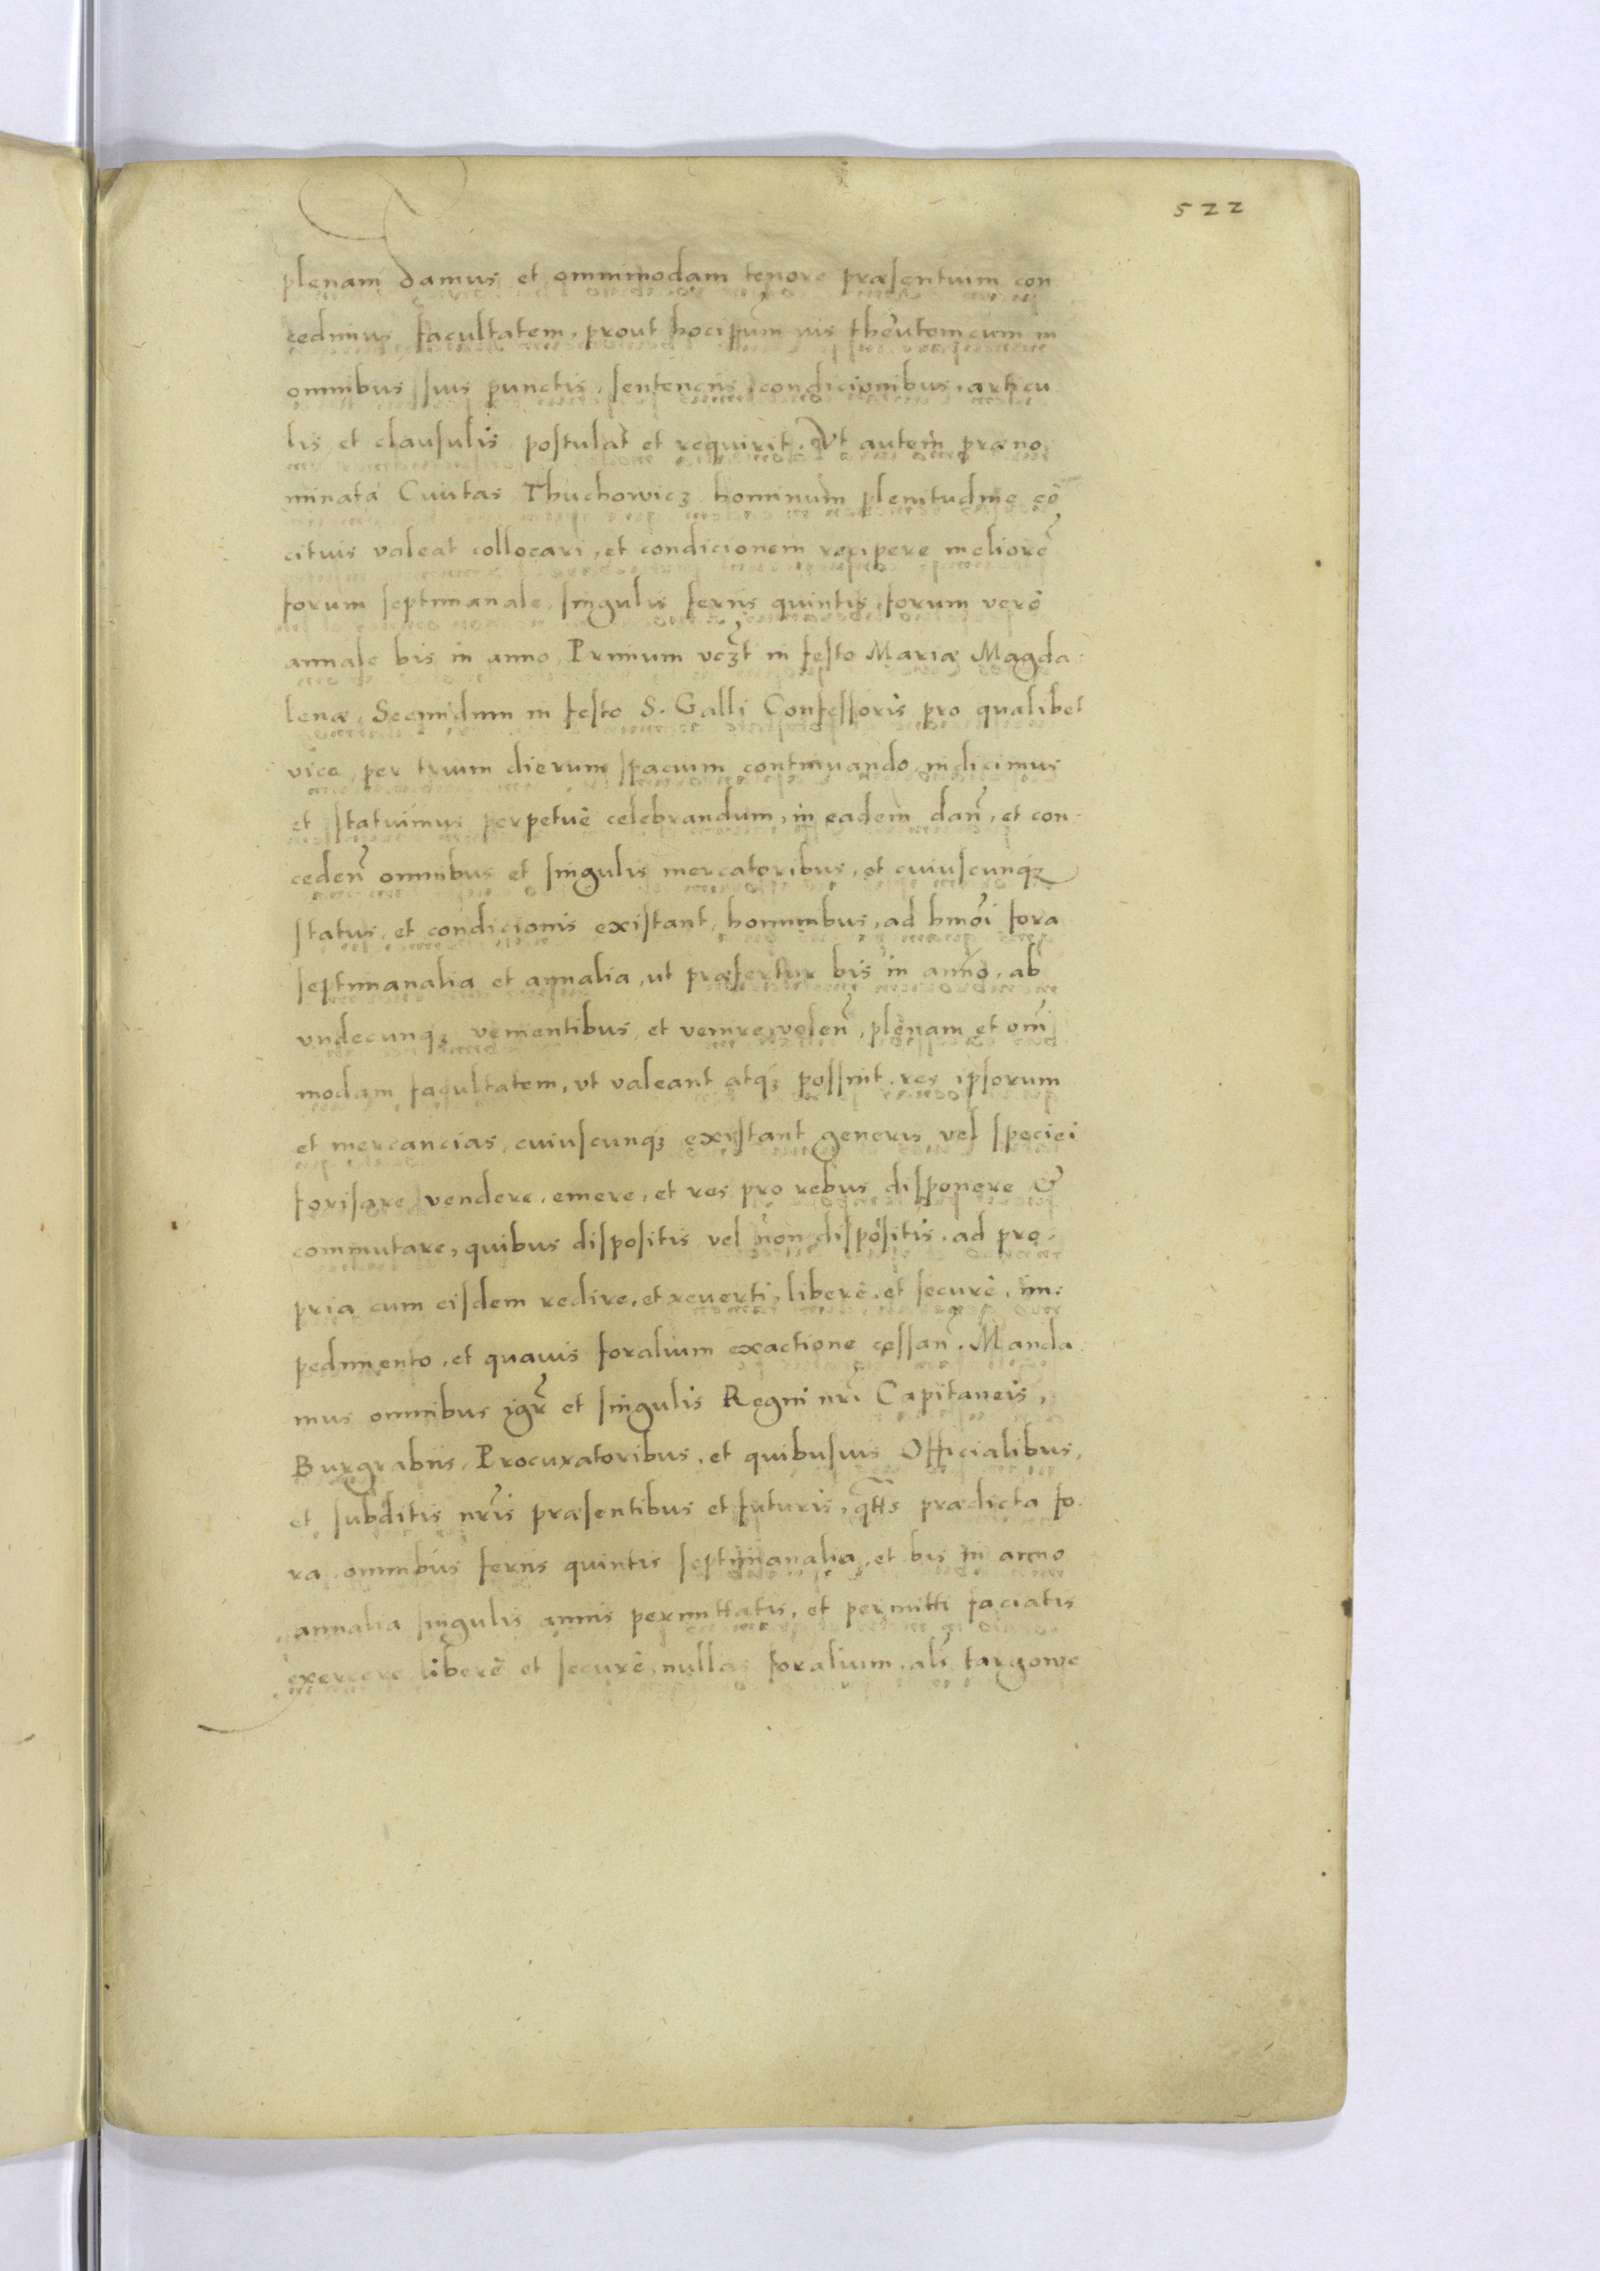 522
plenam damus et omnimodam tenore præsentium con
cedimus facultatem, prout hoc ipsum ius theutonicum in
omnibus suis punctis, sentencÿs, condicionibus, articu
lis et clausulis postulat et requirit. Vt autem præno
minata Ciuitas Thuchowicz hominum plenitudine eò
cituis valeat collocari, et condicionem recipere meliorē
forum septimanale, singulis ferÿs quintis, forum verò
annale bis in anno, Primum vczt in festo Mariæ Magda
lenæ, Secundum in festo S. Galli Confessoris pro qualibet
vice, per trium dierum spacium continuando indicimus
et statuimus perpetuè celebrandum, in eadem dan̄, et con-
ceden̄ omnibus et singulis mercatoribus, et cuiuscunqꝫ
status, et condicionis existant, hominibus, ad hmoi fora
septimanalia et annalia, ut præfertur bis in anno, ab
vndecunqꝫ venientibus, et venire volen̄, plenam et om̄i
modam facultatem, vt valeant atqꝫ possint, res ipsorum
et mercancias, cuiuscunqꝫ existant generis vel speciei
forisare, vendere, emere, et res pro rebus disponere &
commutare, quibus dispositis vel non dispositis, ad pro-
pria cum eisdem redire, et reuerti, liberè, et securè, im:
pedimento, et quauis foralium exactione cessan̄. Manda
mus omnibus igr̄ et singulis Regni nr̄i Capitaneis,
Burgrabÿs, Procuratoribus, et quibusuis Officialibus,
et subditis nr̄is præsentibus et futuris, qtt̄s prædicta fo
ra omnibus ferÿs quintis septimanalia, et bis in anno
annalia singulis annis permittatis, et permitti faciatis
exercere liberè et securè, nullas foralium, al̄s targowe